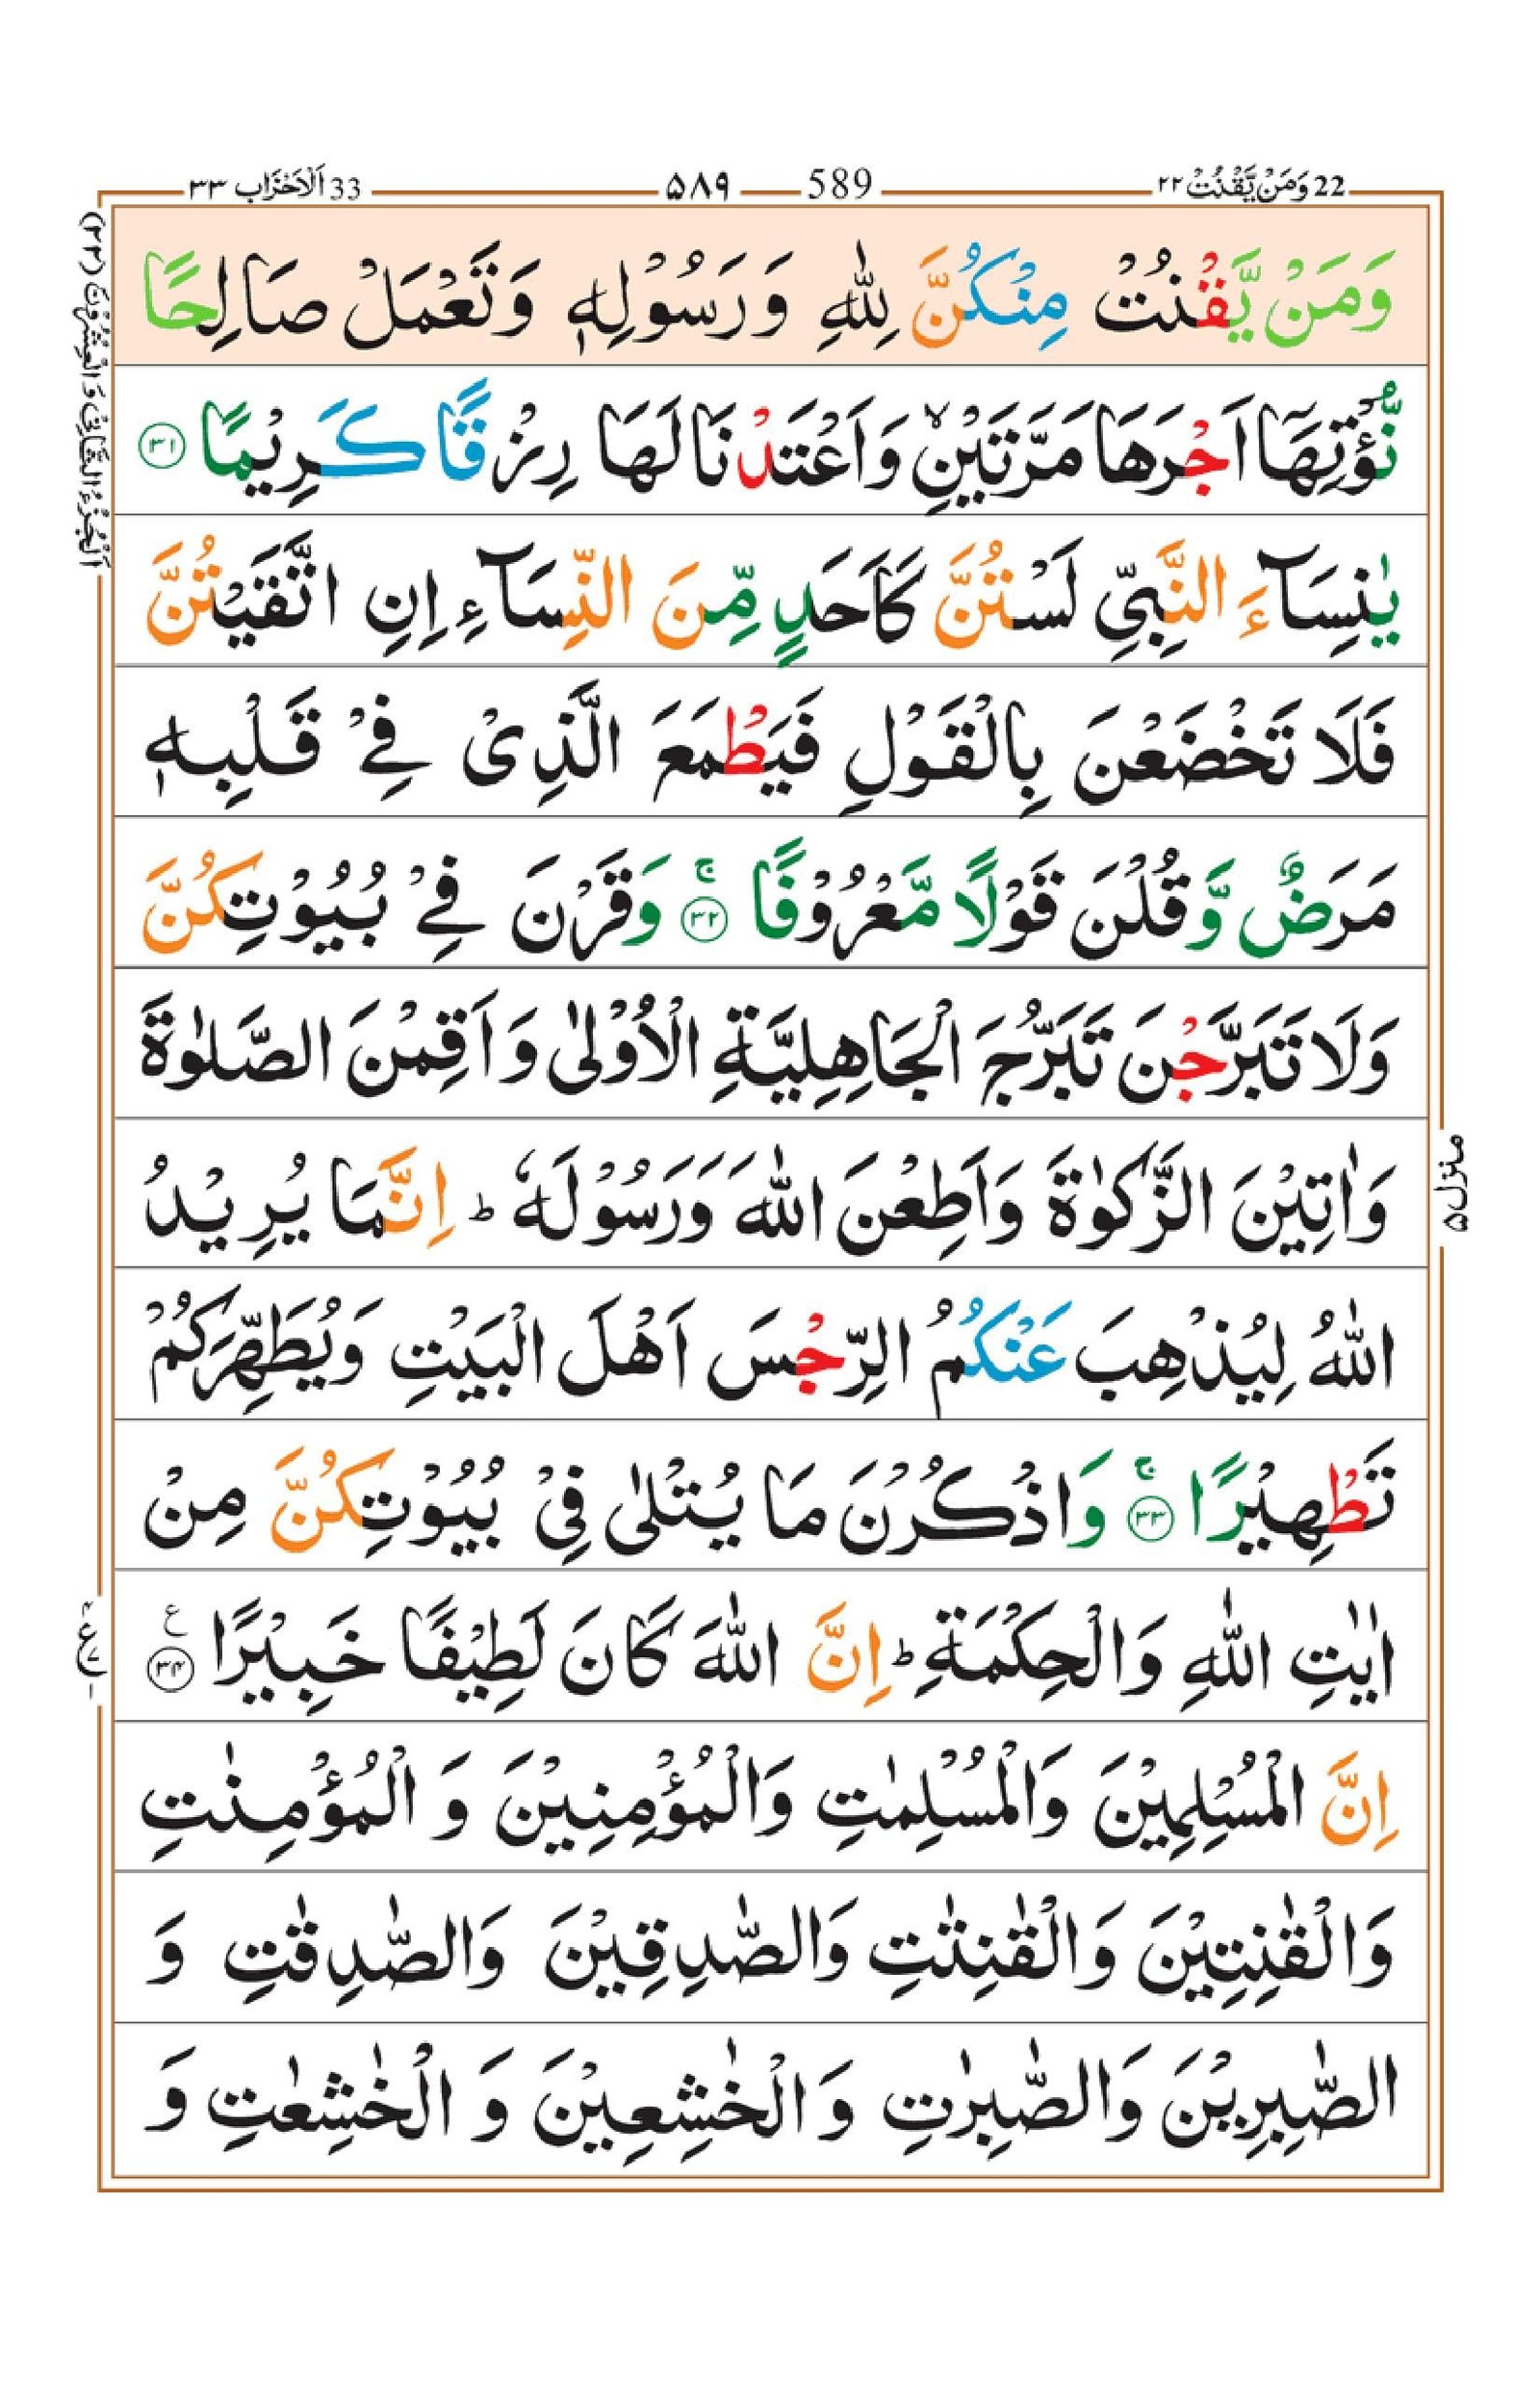 22 وَمَنْ يَّقْنُتْ ٢٢
589 ۵۸۹
33 اَلْاَحْزَاب ٣٣
وَمَنْ يَّقْنُتْ مِنْكُنَّ لِلّٰهِ وَرَسُوْلِهٖ وَتَعْمَلْ صَالِحًا
نُّؤْتِهَاۤ اَجْرَهَا مَرَّتَيْنِۙ وَاَعْتَدْنَا لَهَا رِزْقًا كَرِيْمًا ﴿٣١﴾
يٰنِسَآءَ النَّبِىِّ لَسْتُنَّ كَاَحَدٍ مِّنَ النِّسَآءِ اِنِ اتَّقَيْتُنَّ
فَلَا تَخْضَعْنَ بِالْقَوْلِ فَيَطْمَعَ الَّذِىْ فِىْ قَلْبِهٖ
مَرَضٌ وَّقُلْنَ قَوْلًا مَّعْرُوْفًا ﴿٣٢﴾ۚ وَقَرْنَ فِىْ بُيُوْتِكُنَّ
وَلَا تَبَرَّجْنَ تَبَرُّجَ الْجَاهِلِيَّةِ الْاُوْلٰى وَاَقِمْنَ الصَّلٰوةَ
وَاٰتِيْنَ الزَّكٰوةَ وَاَطِعْنَ اللّٰهَ وَرَسُوْلَهٗ ؕ اِنَّمَا يُرِيْدُ
اللّٰهُ لِيُذْهِبَ عَنْكُمُ الرِّجْسَ اَهْلَ الْبَيْتِ وَيُطَهِّرَكُمْ
تَطْهِيْرًا ﴿٣٣﴾ۚ وَاذْكُرْنَ مَا يُتْلٰى فِىْ بُيُوْتِكُنَّ مِنْ
اٰيٰتِ اللّٰهِ وَالْحِكْمَةِ ؕ اِنَّ اللّٰهَ كَانَ لَطِيْفًا خَبِيْرًا ﴿٣٤﴾ ع
اِنَّ الْمُسْلِمِيْنَ وَالْمُسْلِمٰتِ وَالْمُؤْمِنِيْنَ وَالْمُؤْمِنٰتِ
وَالْقٰنِتِيْنَ وَالْقٰنِتٰتِ وَالصّٰدِقِيْنَ وَالصّٰدِقٰتِ وَ
الصّٰبِرِيْنَ وَالصّٰبِرٰتِ وَالْخٰشِعِيْنَ وَالْخٰشِعٰتِ وَ
اَلْجُزْءُ الثَّانِىْ وَالْعِشْرُوْنَ (٢٢)
منزل ۵